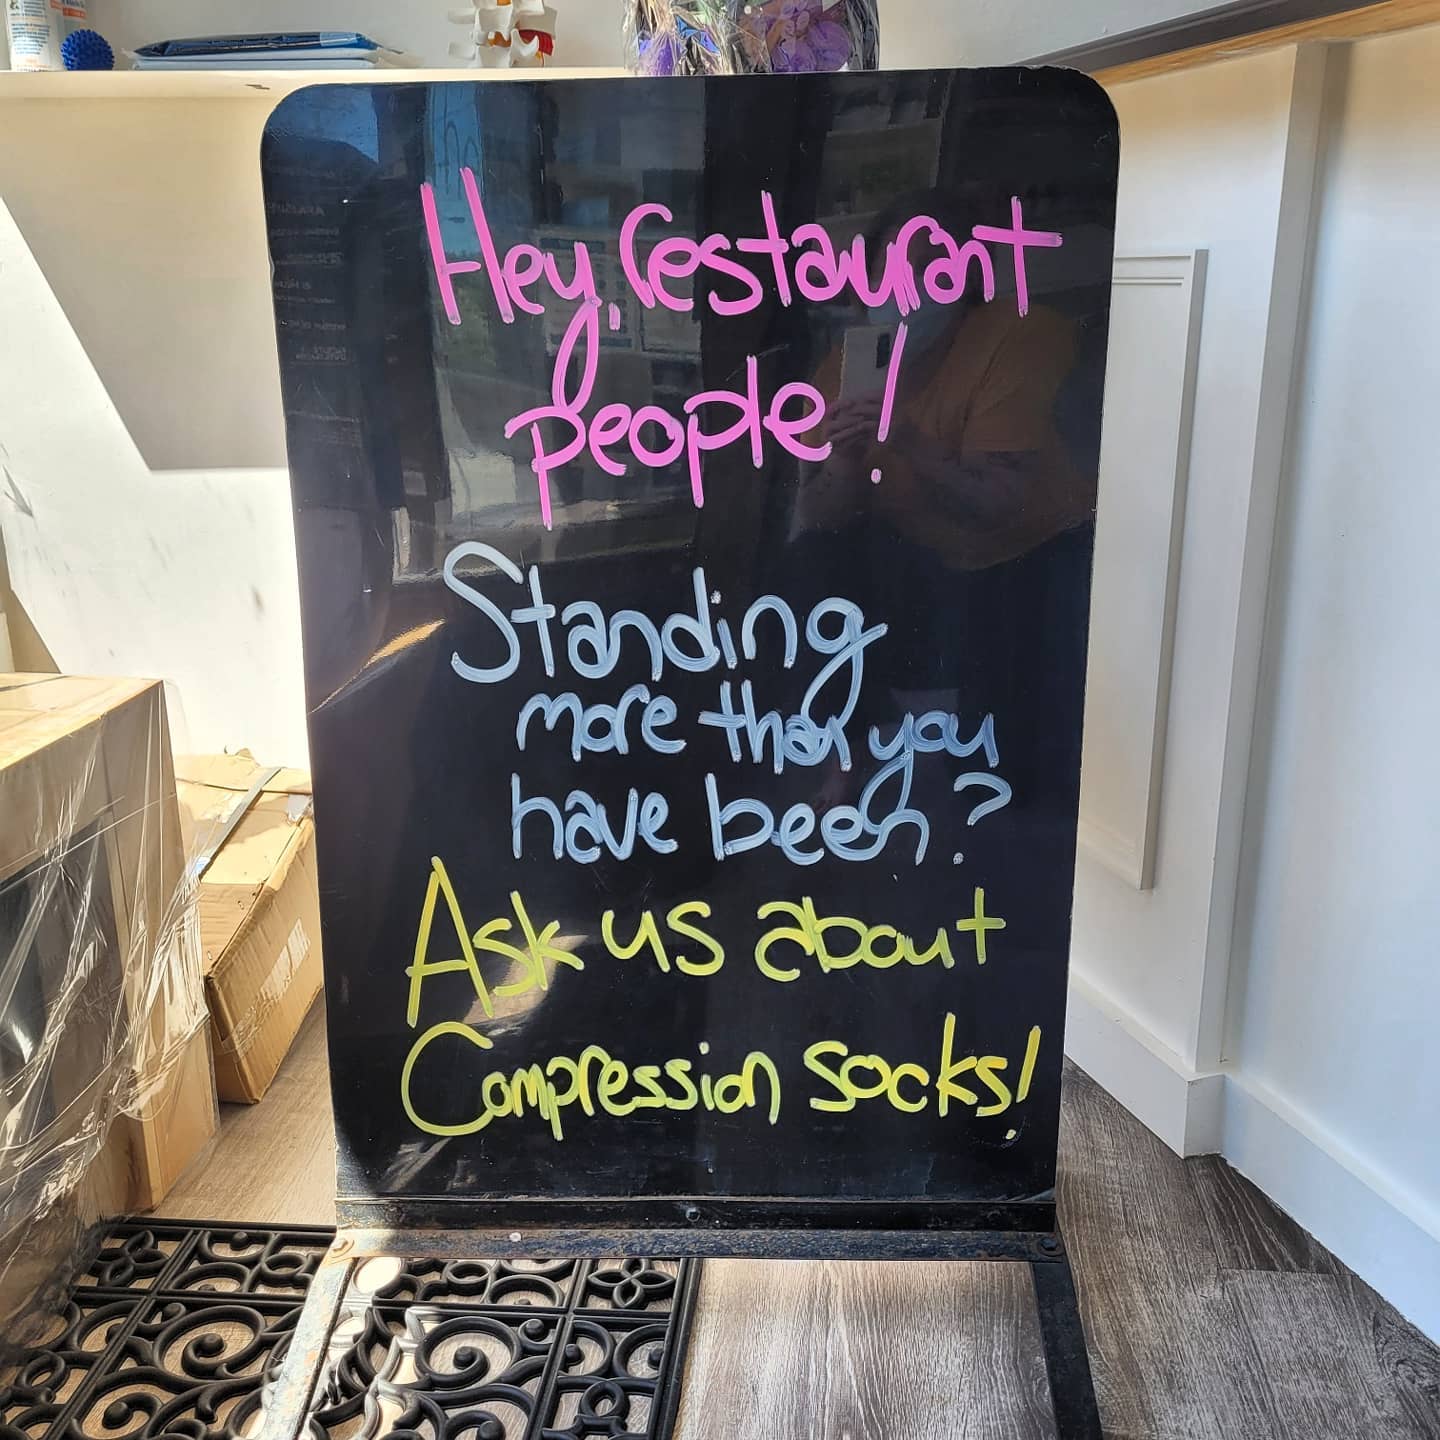 Hey, restaurant
people!
Standing
more than you
have been?
Ask us about
Compression socks!